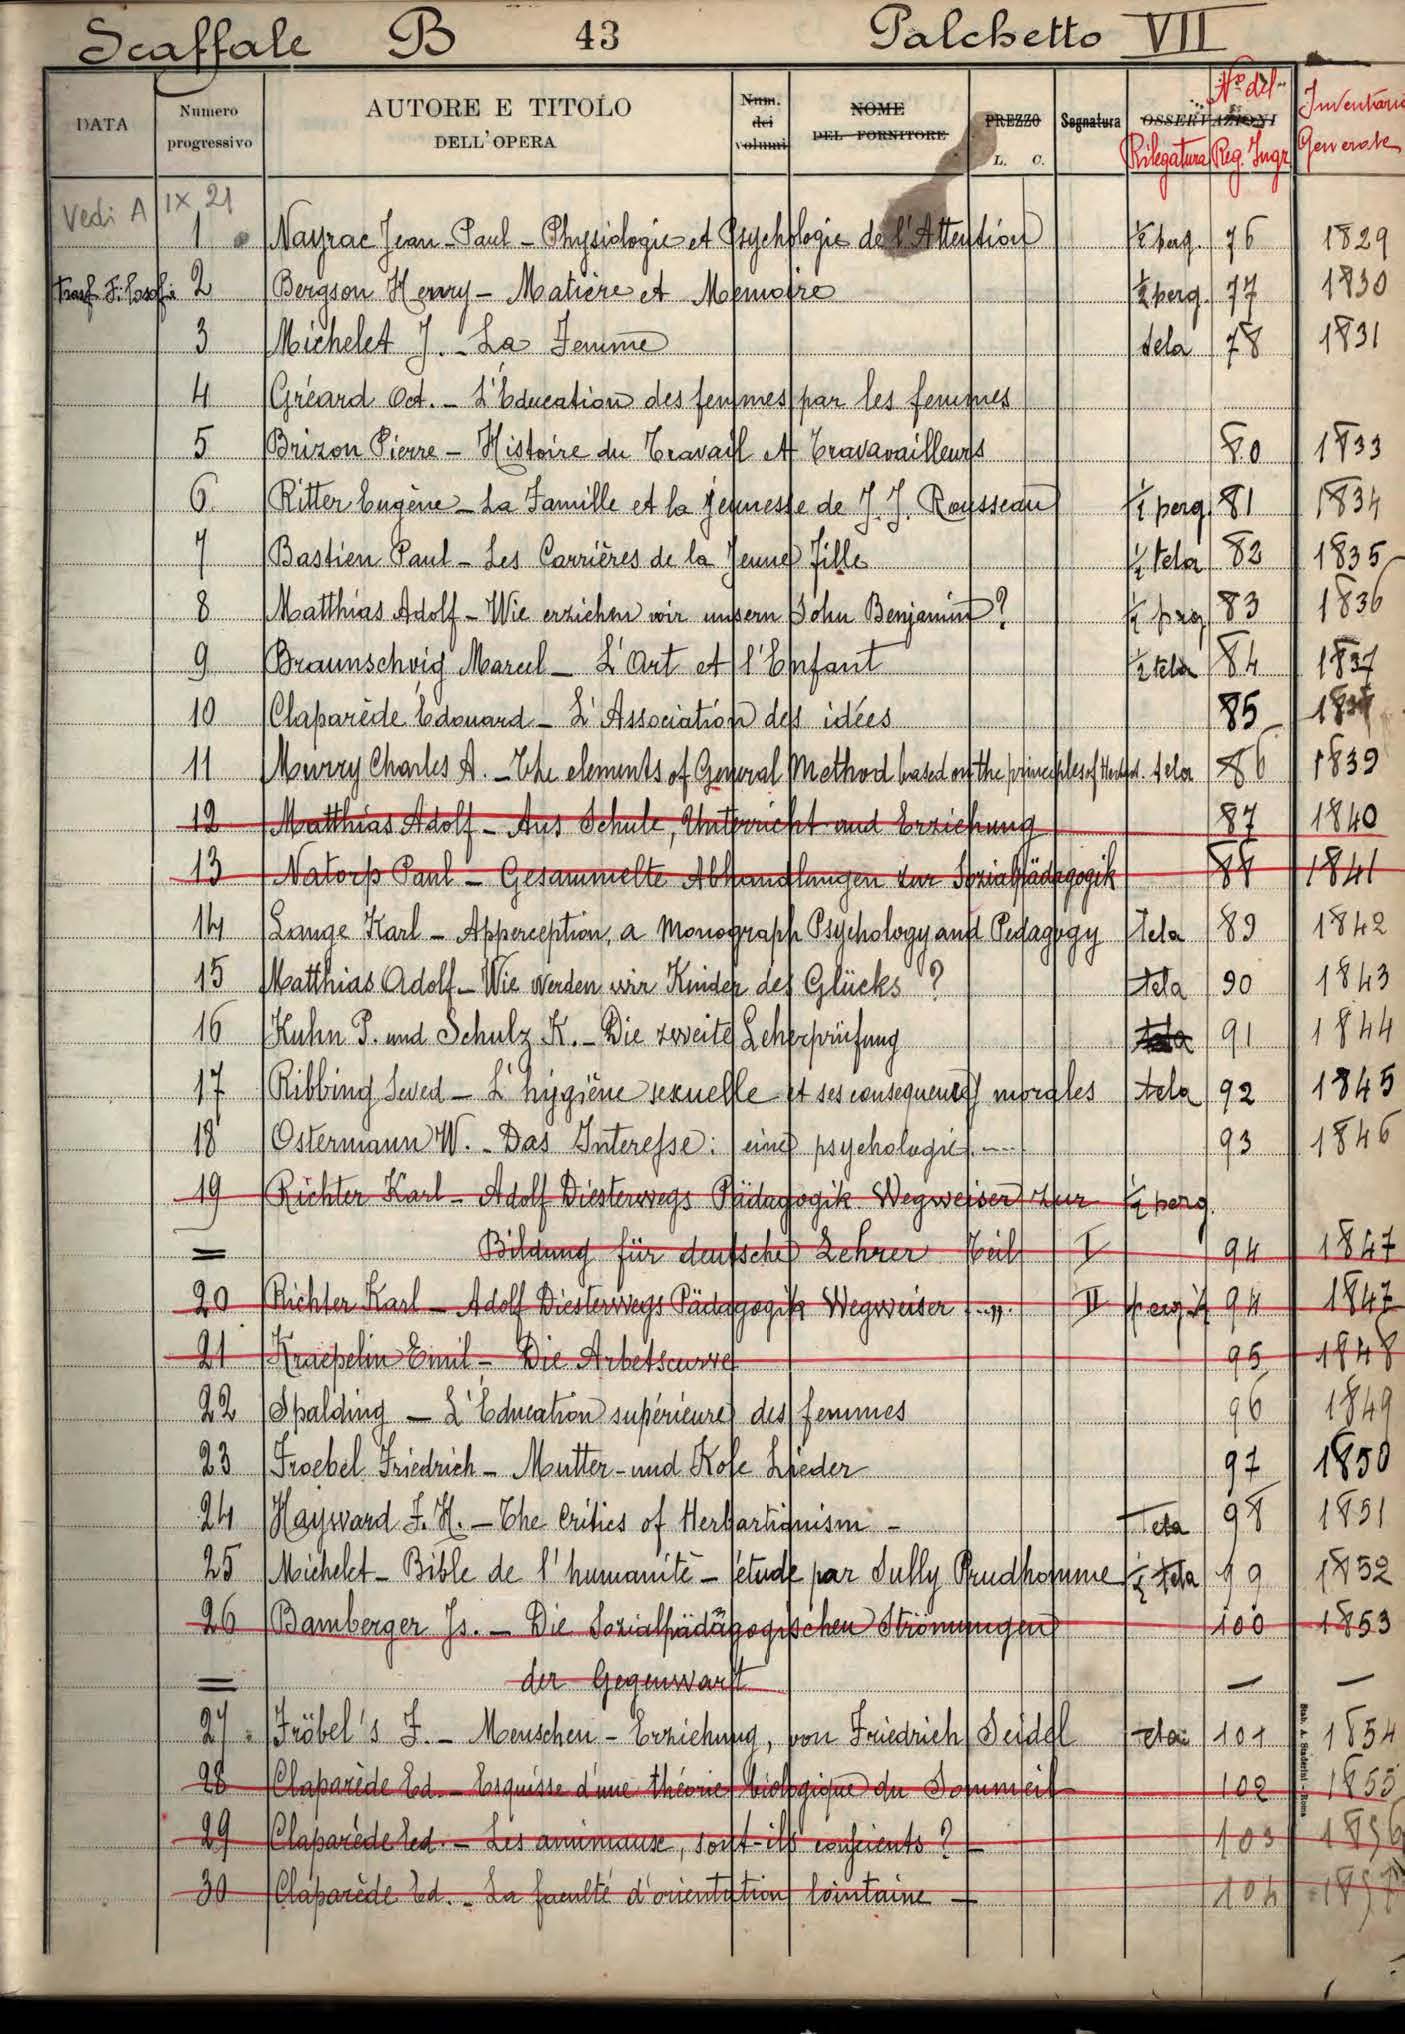 Scaffale B 43 Palchetto VII
DATA Numero progressivo AUTORE E TITOLO DELL'OPERA Num. dei volumi NOME DEL FORNITORE PREZZO L. C. Segnatura OSSERVAZIONI Rilegatura No del Reg. Ingr Inventario Generale
Vedi A IX 21
1 Nayrac Jean-Paul - Physiologie et Psychologie de l'Attention ½ perg. 76 1829
Trasf. Filosofia 2 Bergson Henry - Matière et Memoire ½ perg. 77 1830
3 Michelet J. - La Femme tela 78 1831
4 Gréard Oct. - L'Education des femmes par les femmes
5 Brizon Pierre - Histoire du Travail et Travavailleurs 80 1833
6 Ritter Eugène - La Famille et la jeunesse de J. J. Rousseau ½ perg. 81 1834
7 Bastien Paul - Les Carrières de la Jeune fille ½ tela 82 1835
8 Matthias Adolf - Wie erziehen wir unsern Sohn Benjamin? ½ perg 83 1836
9 Braunschvig Marcel - L'Art et l'Enfant ½ tela 84 1837
10 Claparède Edouard - L'Association des idées 85
11 Murry Charles A. - The elements of General Method based on the principles of tela 86 1839
12 Matthias Adolf - Aus Schule, Unterricht und Erziehung 87 1840
13 Natorp Paul - Gesammelte Abhandlungen zur Sozialpädagogik 88 1841
14 Lange Karl - Apperception, a Monograph Psychology and Pedagogy tela 89 1842
15 Matthias Adolf - Wie werden wir Kinder des Glücks? tela 90 1843
16 Kuhn P. und Schulz K. - Die zweite Leherprüfung tela 91 1844
17 Ribbing Seved - L'hygiène sexuelle et ses consequences morales tela 92 1845
18 Ostermann W. - Das Interesse: eine psychologie ..... 93 1846
19 Richter Karl - Adolf Diesterwegs Pädagogik Wegweiser zur ½ perg.
= Bildung für deutsche Lehrer Teil I 94 1847
20 Richter Karl - Adolf Diesterwegs Pädagogik Wegweiser ..„. II 94 1847
21 Kraepelin Emil - Die Arbetscurve 95 1848
22 Spalding - L'Education supérieure des femmes 96 1849
23 Froebel Friedrich - Mutter-und Kose Lieder 97 1850
24 Hayward F. H. - The Critics of Herbartianism - Tela 98 1851
25 Michelet - Bible de l'humanité - étude par Sully Prudhomme ½ tela 99 1852
26 Bamberger Js. - Die Sozialpädagogischen Strömungen 100 1853
= der Gegenwart — —
27 Fröbel's F. - Menschen - Erziehung, von Friedrich Seidel tela 101 1854
28 Claparède Ed. - Esquisse d'une théorie biologique du Sommeil 102 1855
29 Claparède Ed. - Les animaux, sont-ils conscients? - 103 1856
30 Claparède Ed. - La faculté d'orientation lointaine - 104 1857
Stab. A. Staderini - Roma